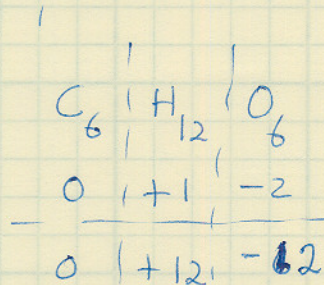 C₆ | H₁₂ | O₆
0 | +1 | -2
0 | +12 | -12